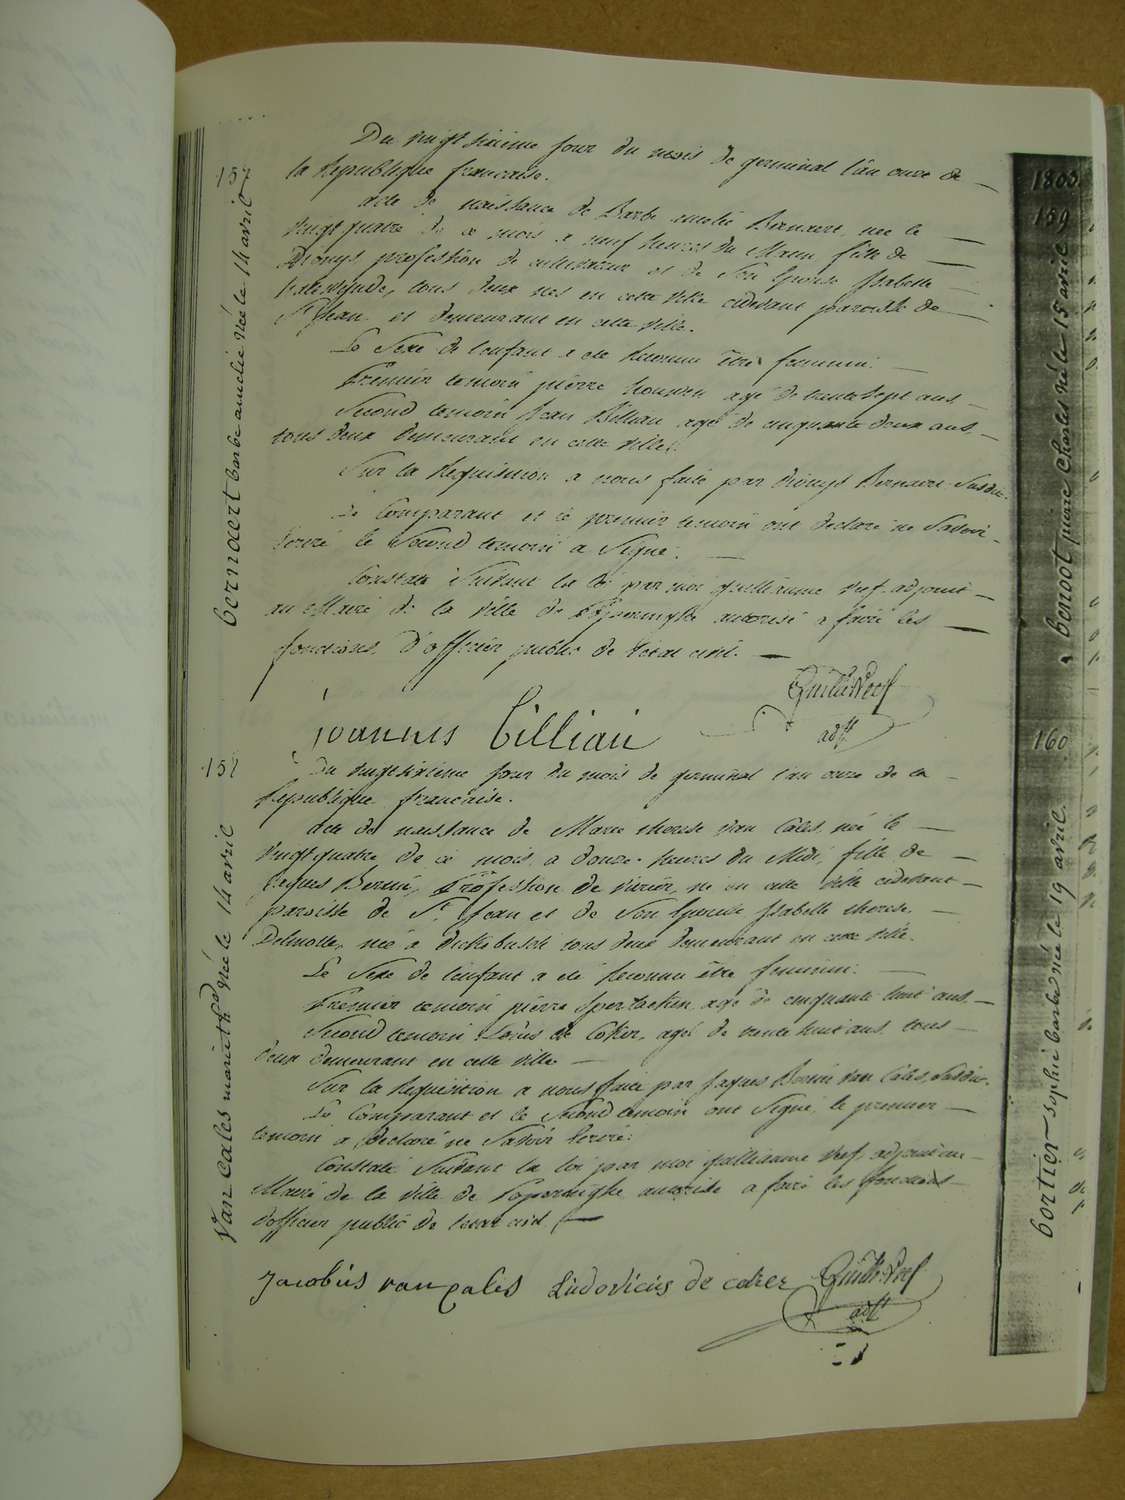 157
bernaert barbe amelie Née le 14 avril
Du vingt sixieme jour du mois de germinal l'an onze de
la Republique francaise.
acte de naissance de Barbe amelie Bernaert, née le
vingt quatre de ce mois a neuf heures du Matin fille de
Dionys profession de cultivateur et de Son Epouse Isabelle
tous deux nes en cette Ville cidevant paroisse de
St Jean et demeurant en cette Ville.
Le Sexe de l'enfant a été Reconnu être feminin.
Premier temoin pierre agé de trente sept ans
Second temoin Jean Billiau agé de cinquante deux ans,
tous deux demeurant en cette Ville.
Sur la Requisition a nous faite par Dionys Bernaert Susdit.
Le Comparant et le premier temoin ont declaré ne Savoir
Ecrire le Second temoin a Signé.
Constaté Suivant la loi par moi guilliaume Neef adjoint
au Maire de la Ville de Poperinghe autorisé a faire les
fonctions d'officier public de l'état civil.
joannis billiau
Guille Neef
adjt
158
Van Cales marie thd Née le 14 avril
Du vingt sixieme jour du mois de germinal l'an onze de la
Republique francaise.
acte de naissance de Marie therese Van Cales, née le
vingt quatre de ce mois, a douze heures du Midi, fille de
Jaques Bernin, Profession de né en cette Ville cidevant
paroisse de St Jean et de Son Epouse Isabelle therese
Delmotte, née a dickebusch tous deux demeurant en cette Ville.
Le Sexe de l'enfant a été Reconnu être feminin.
Premier temoin pierre agé de cinquante huit ans
Second temoin Louis de Coker, agé de trente huit ans, tous
deux demeurant en cette Ville
Sur la Requisition a nous faite par Jaques Bernin Van Cales, Susdit.
Le Comparant et le Second temoin ont Signé, le premier
temoin a declaré ne Savoir Ecrire.
Constaté Suivant la loi par moi guilliaume Neef, adjoint au
Maire de la Ville de Poperinghe autorisé a faire les fonctions
d'officier public de l'etat civil.
Jacobus van Cales Ludovicus de coker Guille Neef
adjt
1803.
159
benoot pierre Charles né le 15 avril
160
bortier sophie barbe née le 19 avril.